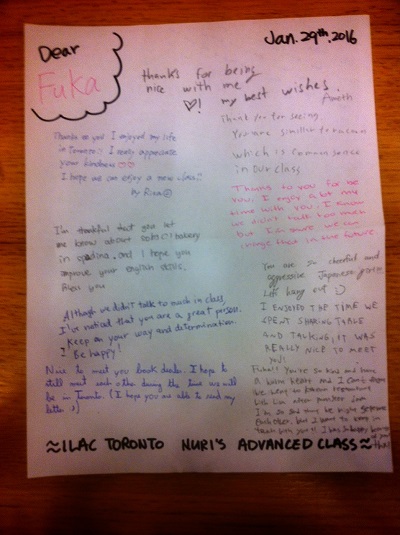 Dear
Fuka
Jan. 29th, 2016
thanks for being
nice with me
♡! my best wishes.
Thanks to you I enjoyed my life
in Toronto! I really appreciate
your kindness
I hope we can enjoy a new class!!
by Rina☺
Thank you for seeing
You are similler to racoon
which is common sence
in our class
Thanks to you for
you, I enjoy a bit my
time with you. I know
we didn't talk too much
but I'm sure we can
change that in the future.
I'm thankful that you let
me know about bakery
in spadina. and I hope you
improve your english skills.
You are so cheerful and
aggressive Japanese girl!!
Let's hang out :)
Although we didn't talk to much in class,
I've noticed that you are a great person.
Keep on your way and determination.
! Be happy!
I ENJOYED THE TIME WE
SPENT SHARING TABLE
AND TALKING, IT WAS
REALLY NICE TO MEET
YOU!
Nice to meet you I hope to
still meet each other during the time we will
be in Toronto. (I hope you are able to read my
letter :)
Fuka!! You're so kind and have
a warm heart and I can't
we went to korean restaurant
I'm so sad
each other. but I want to keep in
touch with you!! I was so happy
≈ILAC TORONTO NURI'S ADVANCED CLASS≈